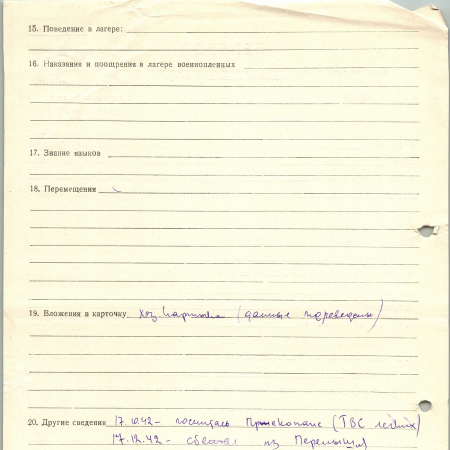 15. Поведение в лагере:
16. Наказания и поощрения в лагере военнопленных
17. Знание языков
18. Перемещения
19. Вложения в карточку хоз карточка (данные переведены)
20. Другие сведения 17.10.42 - (ТВС лёгких)
17.12.42 - из Перемышля